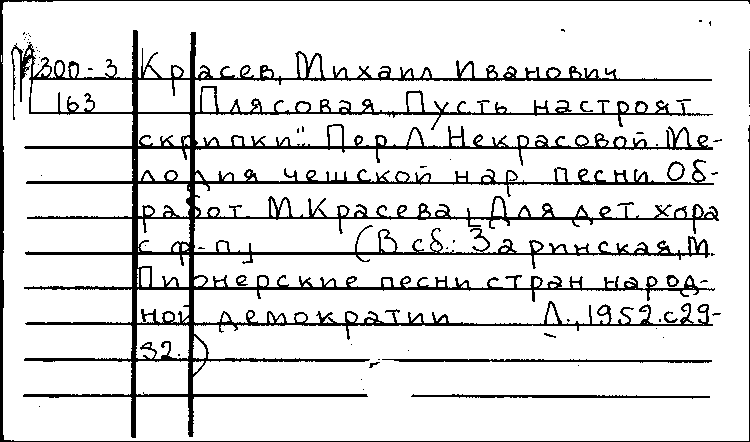 М300-3 Красев, Михаил Иванович
163 Плясовая „Пусть настроят
скрипки“. Пер. Л. Некрасовой. Ме-
лодия чешской нар. песни. Об-
работ. М. Красева [Для дет. хора
с ф-п.] (В сб.: Заринская, М.
Пионерские песни стран народ-
ной демократии Л., 1952. с 29-
32.)